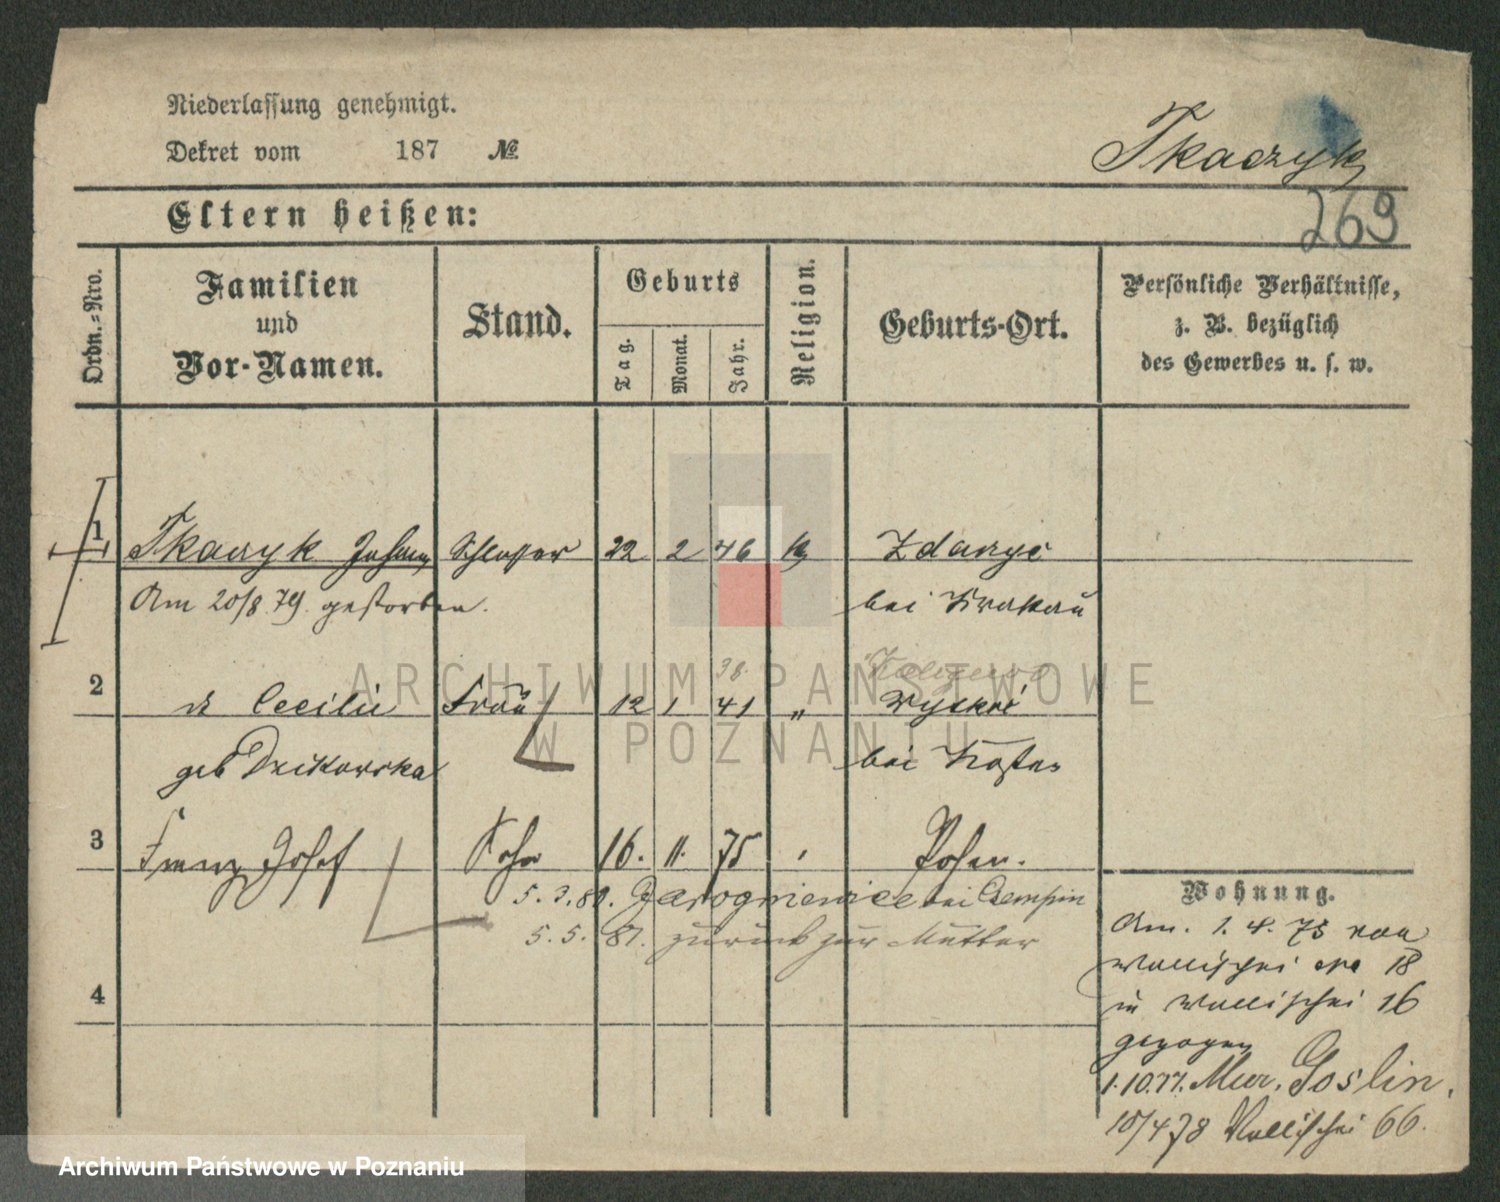 Niederlassung genehmigt.
Dekret vom 187 №
Tkaczyk
Eltern heißen:
269
Ordn.-Nro.
Familien und Vor-Namen.
Stand.
Geburts
Tag.
Monat.
Jahr.
Religion.
Geburts-Ort.
Persönliche Verhältnisse,
z. B. bezüglich
des Gewerbes u. s. w.
1 Tkaczyk Johann Schlosser 22 2 46 k
bei Krakau
Am 20/8. 79. gestorben.
38.
2 Cecilie Frau 12 1 41 "
geb Dzikowska bei Kosten
3 Franz Josef Sohn 16. 11. 75 Posen.
5. 3. 81. bei Czempin
5. 5. 81. zurück zur Mutter
4
Wohnung.
Am. 1. 4. 75 von
Wallischei No 18
in Wallischei 16
gezogen
1.10.77. Mur. Goslin.
10/4 78 Wallischei 66.
ARCHIWUM PAŃSTWOWE
W POZNANIU
Archiwum Państwowe w Poznaniu